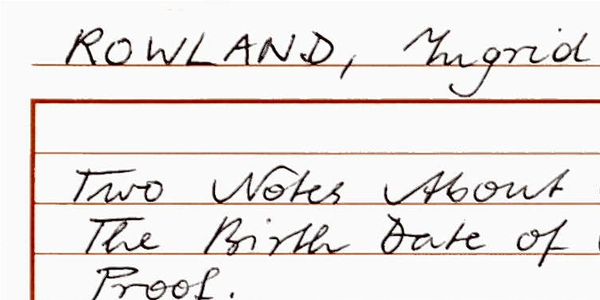 ROWLAND, Ingrid
Two Notes About
The Birth Date of
Proof.